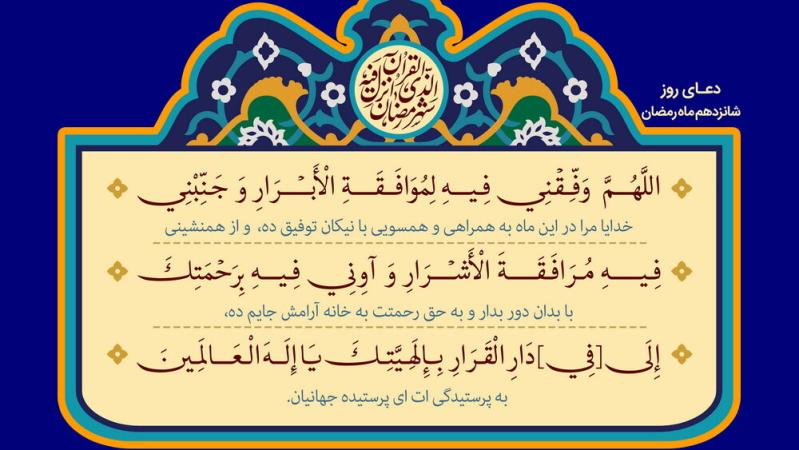 شهر رمضان الذی انزل فیه القرآن
دعـای روز
شانزدهم ماه رمضان
اللَّهُـمَّ وَفِّقْنِي فِيـهِ لِمُوَافَـقَـةِ الْأَبْـرَارِ وَ جَنِّبْنِي
خدایا مرا در این ماه به همراهی و همسویی با نیکان توفیق ده، و از همنشینی
فِيـهِ مُرَافَقَـةَ الْأَشْـرَارِ وَ آوِنِي فِيـهِ بِرَحْمَتِكَ
با بدان دور بدار و به حق رحمتت به خانه آرامش جایم ده،
إِلَى [فِي] دَارِ الْقَرَارِ بِإِلَهِيَّتِـكَ يَا إِلَـهَ الْعَـالَمِينَ
به پرستیدگی ات ای پرستیده جهانیان.